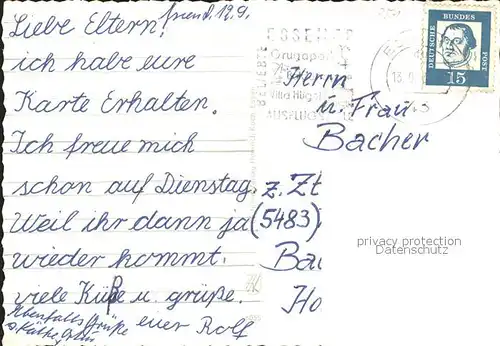 Liebe Eltern!
ich habe eure
Karte Erhalten.
Ich freue mich
schon auf Dienstag.
Weil ihr dann ja
wieder kommt.
viele Küße u. grüße.
euer Rolf
ESSENER
Grugapark
Villa Hügel
BELIEBTE
AUSFLUGS
DEUTSCHE BUNDES POST
15
Herrn
u. Frau
Bacher
z. Zt
(5483)
Ba
Ho
privacy protection
Datenschutz